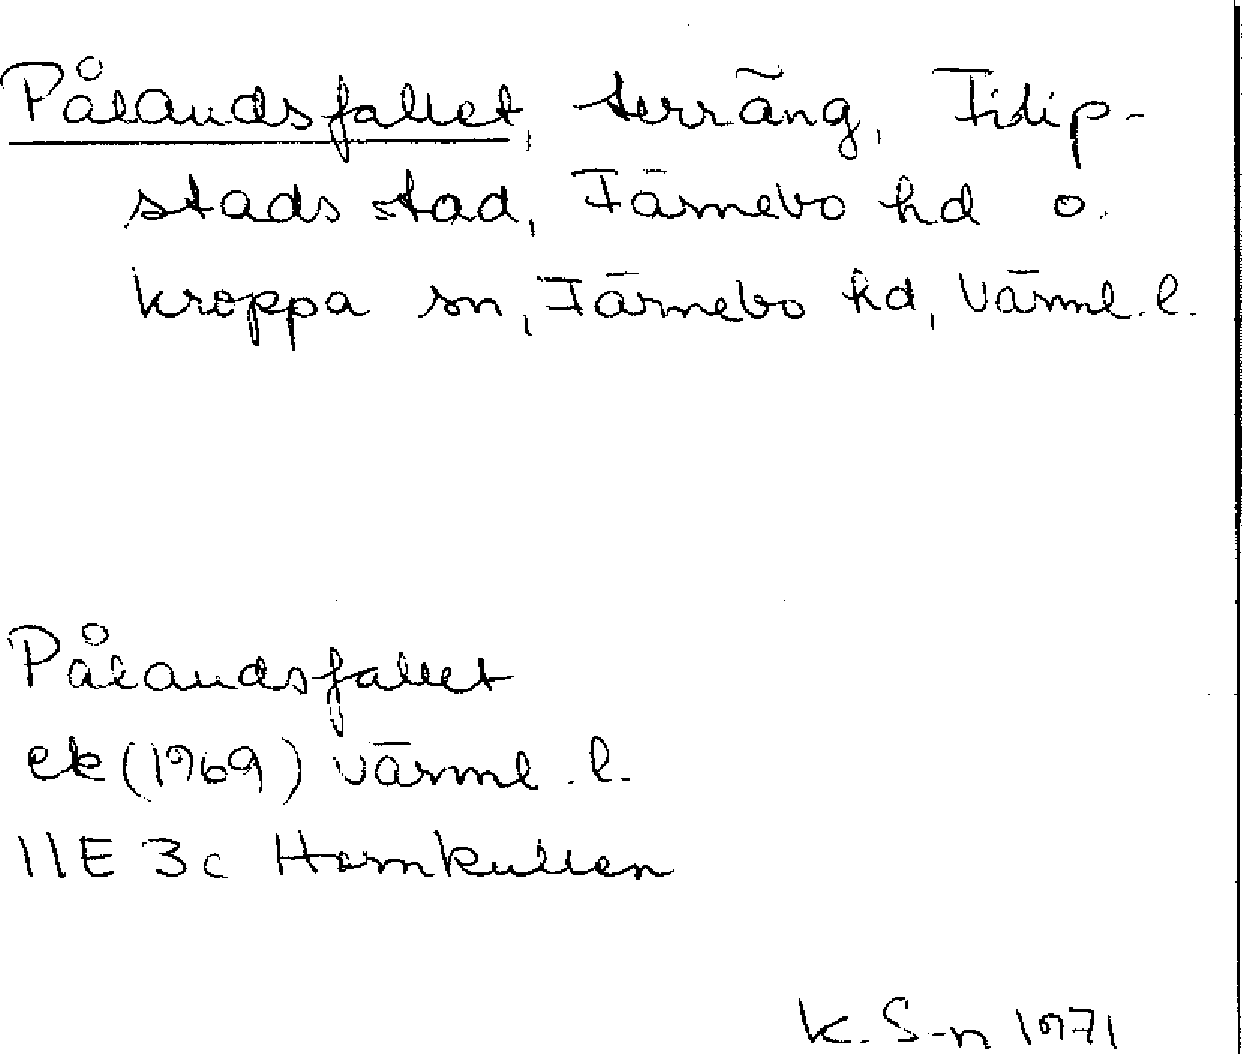 Pålandsfallet, terräng, Filip-
stads stad, Färnebo hd o.
Kroppa sn, Färnebo hd, Värml. l.
Pålandsfallet
ek (1969) Värml. l.
11E 3c Hornkullen
K. S-n 1971